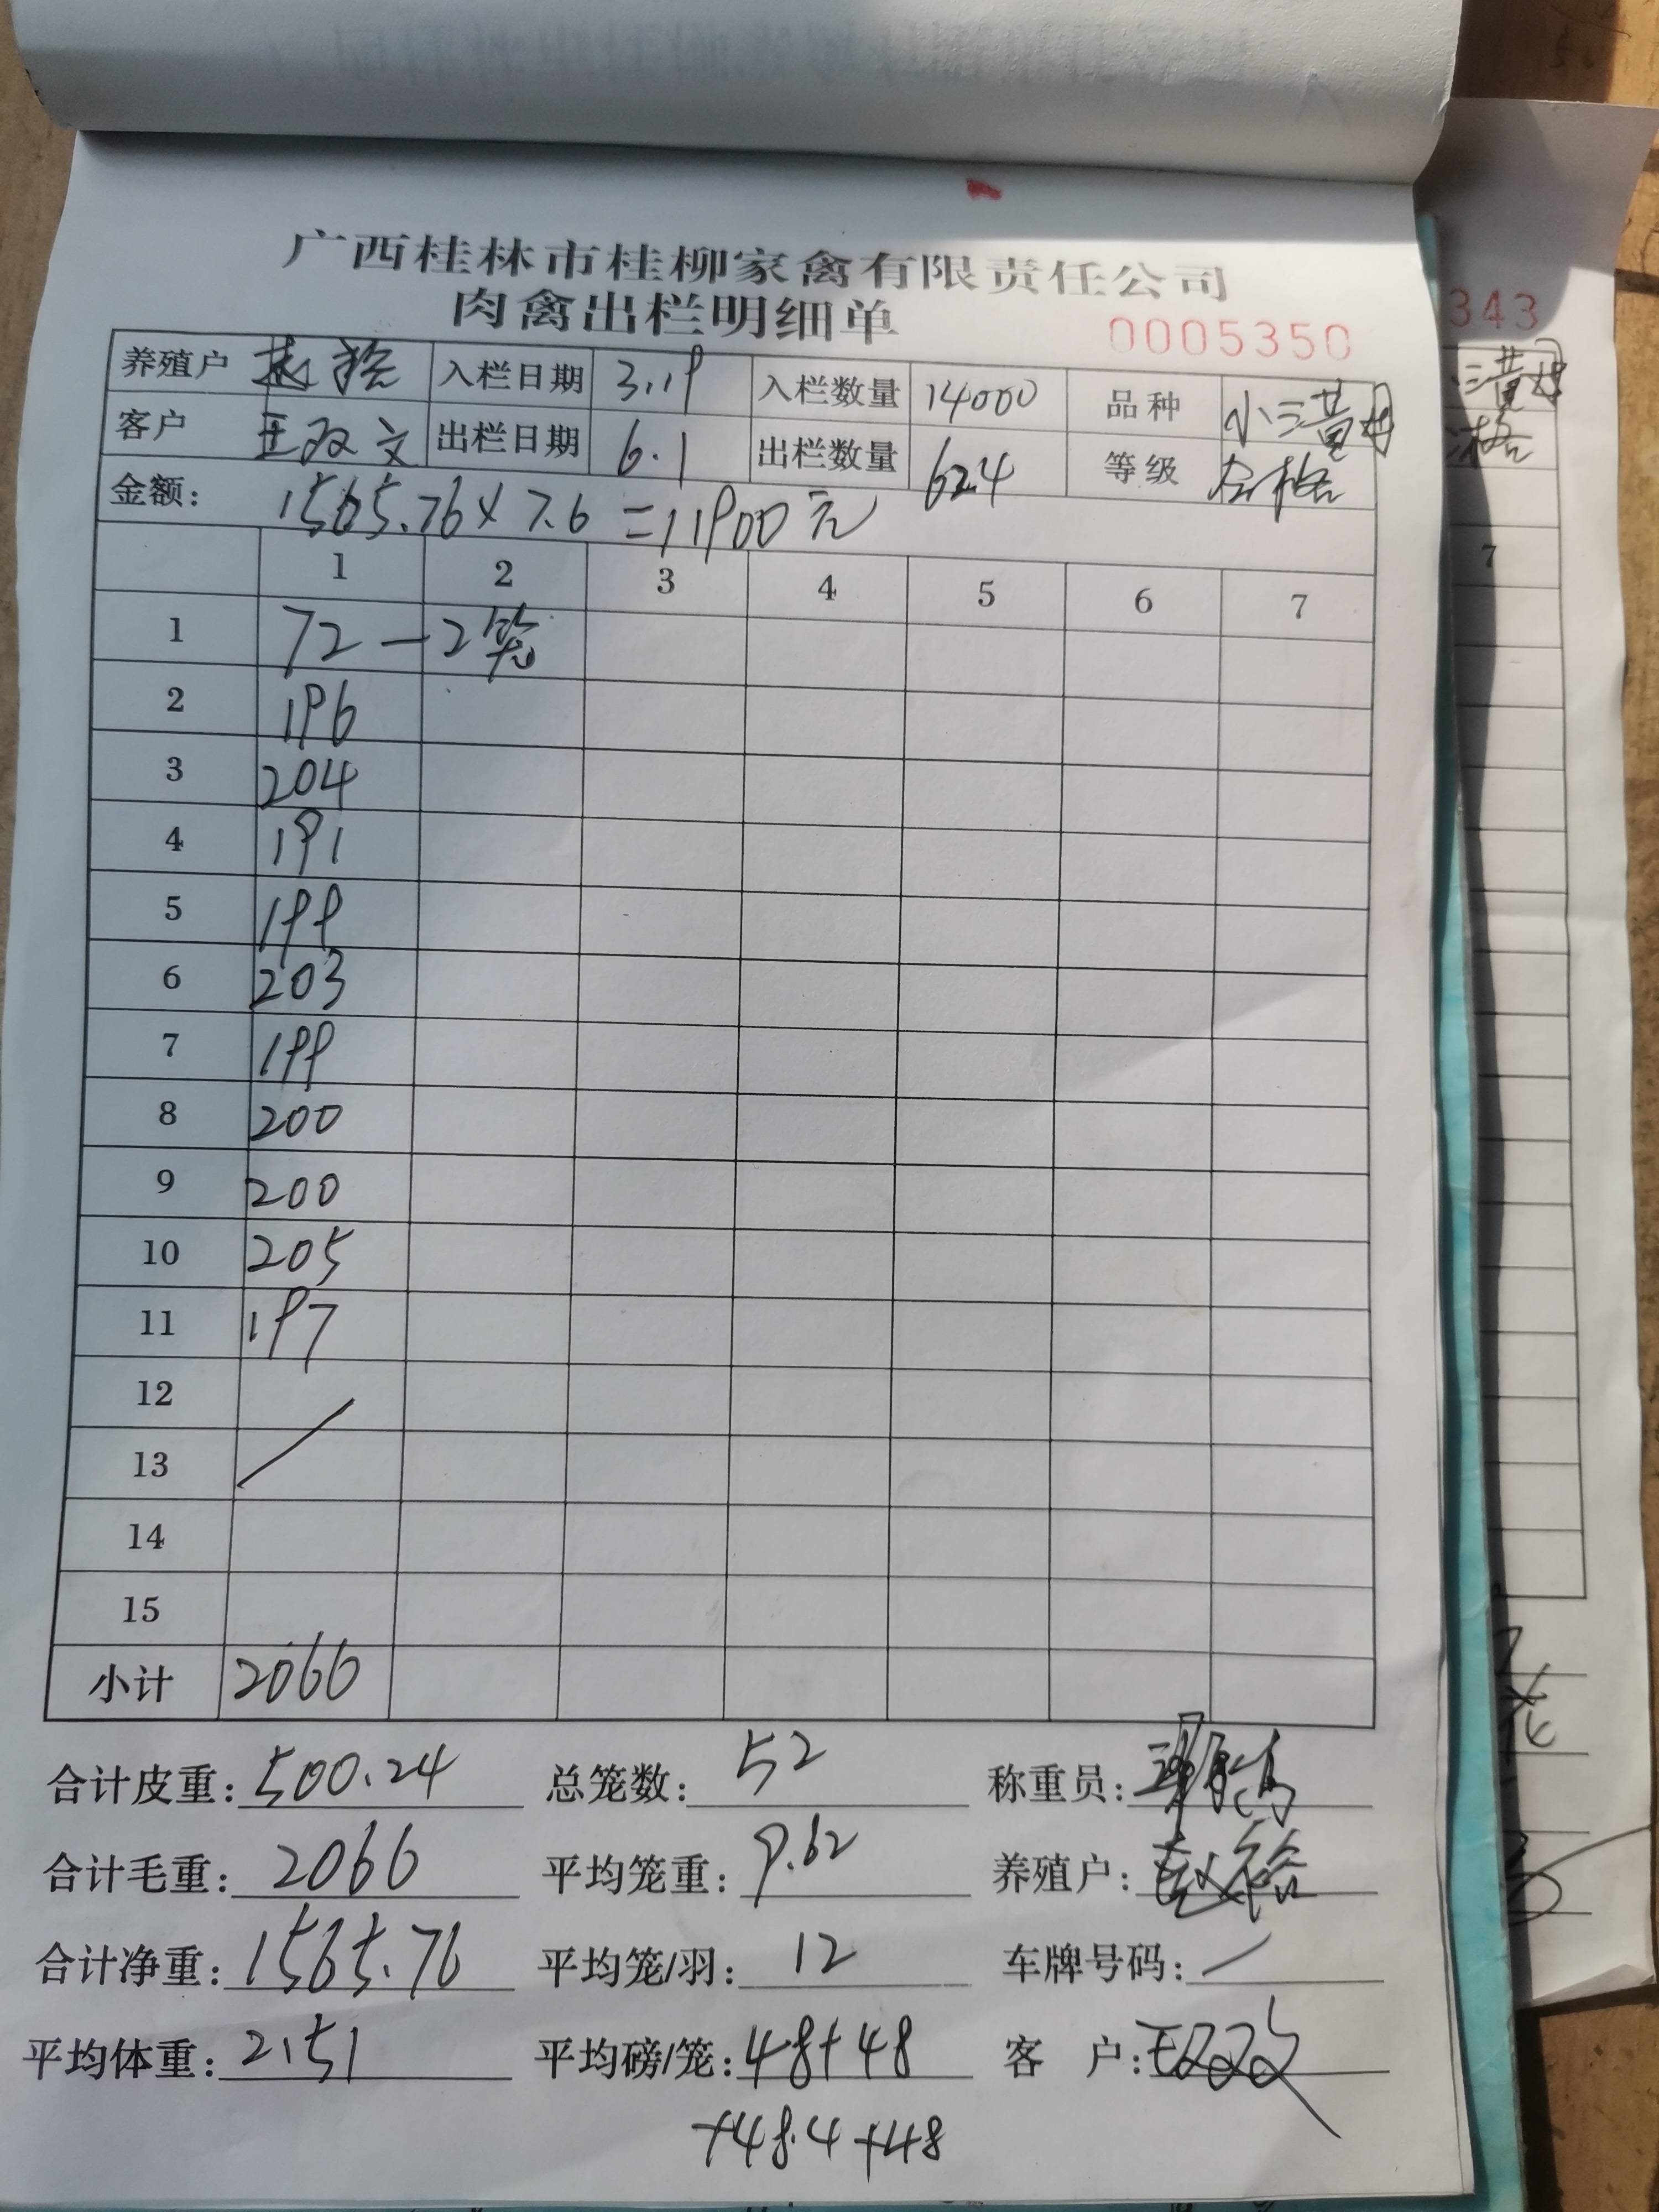 广西桂林市桂柳家禽有限责任公司
肉禽出栏明细单
0005350
343
养殖户 赵裕 入栏日期 3.19 入栏数量 14000 品种 小三黄母
客户 王双文 出栏日期 6.1 出栏数量 624 等级 合格
金额: 1565.76×7.6=11900元
1 2 3 4 5 6 7
1 72—2笼
2 196
3 204
4 191
5 199
6 203
7 199
8 200
9 200
10 205
11 197
12
13
14
15
小计 2066
合计皮重: 500.24 总笼数: 52 称重员:
合计毛重: 2066 平均笼重: 9.62 养殖户: 赵裕
合计净重: 1565.76 平均笼/羽: 12 车牌号码: /
平均体重: 2.51 平均磅/笼: 48+48 客 户: 王双文
+48.4+48